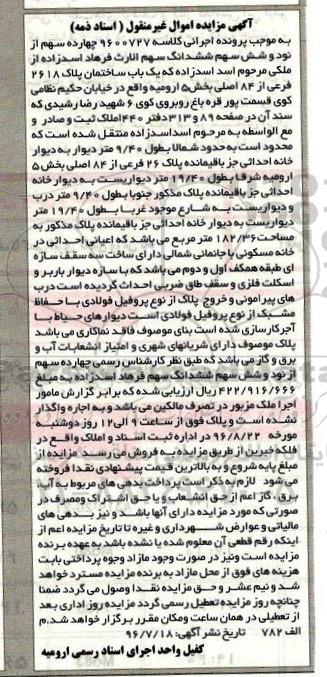 آگهی مزایده اموال غیر منقول ( اسناد ذمه)
به موجب پرونده اجرائی کلاسه ۹۶۰۰۷۲۷ چهارده سهم از
نود و شش سهم ششدانگ سهم الارث فرهاد اسدزاده از
ملکی مرحوم اسد اسدزاده که یک باب ساختمان پلاک ۲۶۱۸
فرعی از ۸۴ اصلی بخش۵ ارومیه واقع در خیابان حکیم نظامی
کوی قسمت پور قره باغ روبروی کوی ۶ شهید رشیدی که
سند آن در صفحه ۸۹ و ۳۱۳ دفتر ۴۴۰ املاک ثبت و صادر و
مع الواسطه به مرحوم اسداسدزاده منتقل شده است که
محدود است به حدود شمالا بطول ۹/۴۰ متر دیوار به دیوار
خانه احداثی جز باقیمانده پلاک ۲۶ فرعی از ۸۴ اصلی بخش۵
ارومیه شرقا بطول ۱۹/۴۰ متر دیواریست به دیوار خانه
احداثی جز باقیمانده پلاک مذکور جنوبا بطول ۹/۴۰ متر درب
و دیواریست به شارع موجود غربا بطول ۱۹/۴۰ متر
دیواریست به دیوار خانه احداثی جز باقیمانده پلاک مذکور به
مساحت ۱۸۲/۳۶ متر مربع می باشد که اعیانی احداثی در
خانه مسکونی با جانمائی شمالی دارای ساخت سه سقف سازه
ای طبقه همکف اول و دوم می باشد که با سازه دیوار باربر و
اسکلت فلزی و سقف طاق ضربی احداث گردیده است درب
های پیرامونی و خروج پلاک از نوع پروفیل فولادی با حفاظ
مشبک از نوع پروفیل فولادی است دیوارهای حیاط با
آجرکارسازی شده است بنای موصوف فاقد نماکاری می باشد
پلاک موصوف دارای شریانهای شهری و امتیاز انشعابات آب و
برق و گاز می باشد که طبق نظر کارشناس رسمی چهارده سهم
از نود و شش سهم ششدانگ سهم فرهاد اسدزاده به مبلغ
۴۲۲/۹۱۶/۶۶۶ ریال ارزیابی شده که برابر گزارش مامور
اجرا ملک مزبور در تصرف مالکین می باشد و به اجاره واگذار
نشده است و پلاک فوق از ساعت ۹ الی۱۲ روز دوشنبه
مورخه ۹۶/۸/۲۲ در اداره ثبت اسناد و املاک واقع در
فلکه خیرین از طریق مزایده به فروش می رسد مزایده از
مبلغ پایه شروع و به بالاترین قیمت پیشنهادی نقدا فروخته
می شود لازم به ذکر است پرداخت بدهی های مربوط به آب
برق ، گاز اعم از حق انشعاب و یا حق اشتراک ومصرف در
صورتی که مورد مزایده دارای آنها باشد و نیز بدهی های
مالیاتی و عوارض شهرداری و غیره تا تاریخ مزایده اعم از
اینکه رقم قطعی آن معلوم شده یا نشده باشد به عهده برنده
مزایده است ونیز در صورت وجود مازاد وجوه پرداختی بابت
هزینه های فوق از محل مازاد به برنده مزایده مسترد خواهد
شد و نیم عشر و حق مزایده نقدا وصول می گردد ضمنا
چنانچه روز مزایده تعطیل رسمی گردد مزایده روز اداری بعد
از تعطیلی در همان ساعت ومکان مقرر برگزار خواهد شد.م
الف ۷۸۲ تاریخ نشر آگهی: ۹۶/۷/۱۸
کفیل واحد اجرای اسناد رسمی ارومیه